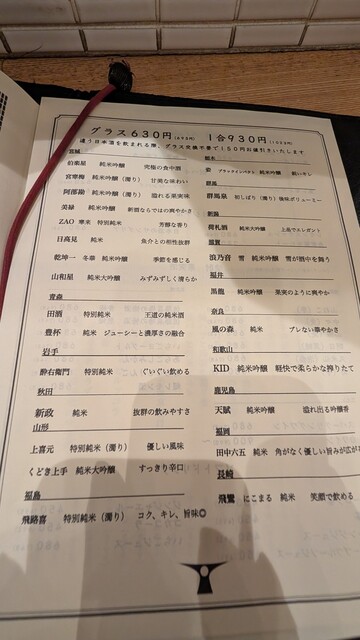 グラス630円(693円) 1合930円(1023円)
違う日本酒を飲まれる際、グラス交換不要で150円お値引きいたします
宮城
伯楽星 純米吟醸 究極の食中酒
宮寒梅 純米吟醸(濁り) 甘美な味わい
阿部勘 純米吟醸(濁り) 溢れる果実味
美緑 純米吟醸 新酒ならではの爽やかさ
ZAO 寒来 特別純米 芳醇な香り
日高見 純米 魚介との相性抜群
乾坤一 冬華 純米吟醸 季節を感じる
山和星 純米大吟醸 みずみずしく清らか
青森
田酒 特別純米 王道の純米酒
豊杯 純米 ジューシーと濃厚さの融合
岩手
酔右衛門 特別純米 ぐいぐい飲める
秋田
新政 純米 抜群の飲みやすさ
山形
上喜元 特別純米(濁り) 優しい風味
くどき上手 純米大吟醸 すっきり辛口
福島
飛露喜 特別純米(濁り) コク、キレ、旨味◎
栃木
姿 ブラックインパクト 純米吟醸 鋭いキレ
群馬
群馬泉 初しぼり(濁り) 後味ボリューミー
新潟
荷札酒 純米大吟醸 上品でエレガント
滋賀
浪乃音 雪 純米吟醸 雪が酒中を舞う
福井
黒龍 純米吟醸 果実のように爽やか
奈良
風の森 純米 ブレない華やかさ
和歌山
KID 純米吟醸 軽快で柔らかな搾りたて
鹿児島
天賦 純米吟醸 溢れ出る吟醸香
福岡
田中六五 純米 角がなく優しい旨みが広が
長崎
飛鸞 にこまる 純米 笑顔で飲める